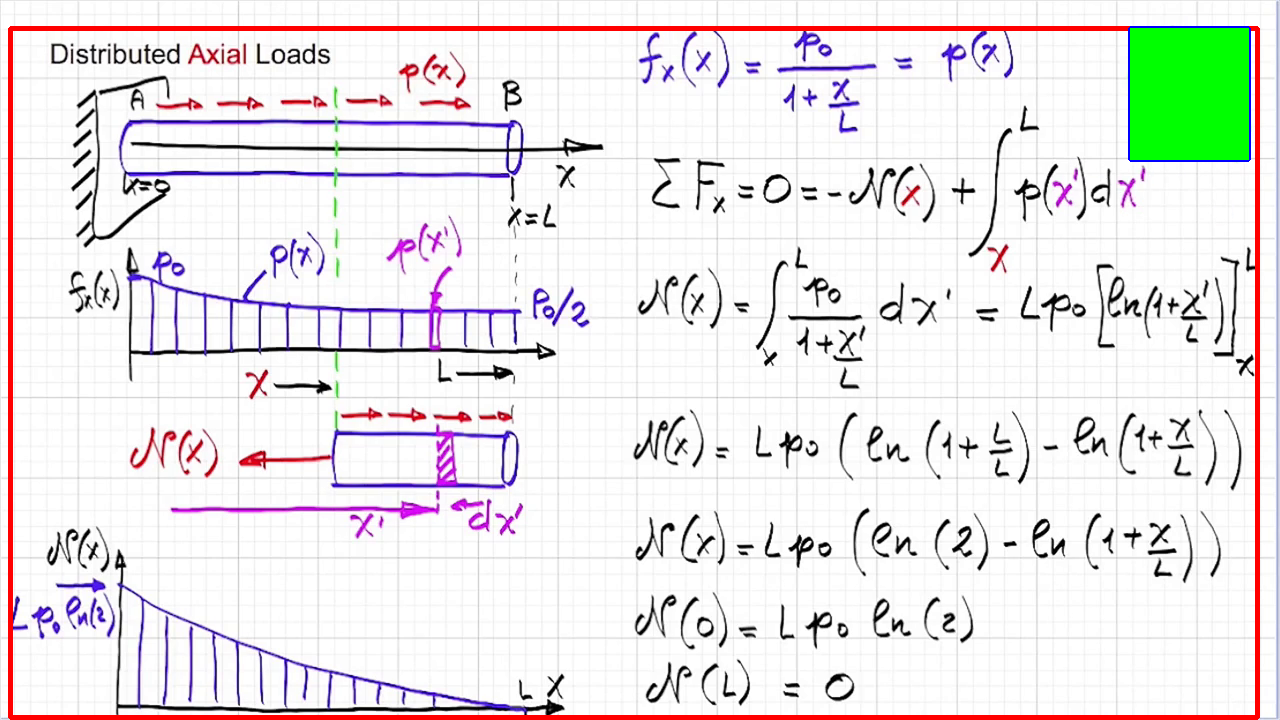 Distributed Axial Loads
p(x)
A
B
x=0
x
x=L
p0
p(x)
p(x')
fx(x)
p0/2
x
L
N(x)
x'
dx'
N(x)
L p0 ln(2)
L x
fx(x) = p0 / (1 + x/L) = p(x)
∑ Fx = 0 = -N(x) + ∫_x^L p(x') dx'
N(x) = ∫_x^L p0 / (1 + x'/L) dx' = L p0 [ln(1 + x'/L)]_x^L
N(x) = L p0 (ln (1 + L/L) - ln (1 + x/L))
N(x) = L p0 (ln (2) - ln (1 + x/L))
N(0) = L p0 ln (2)
N(L) = 0